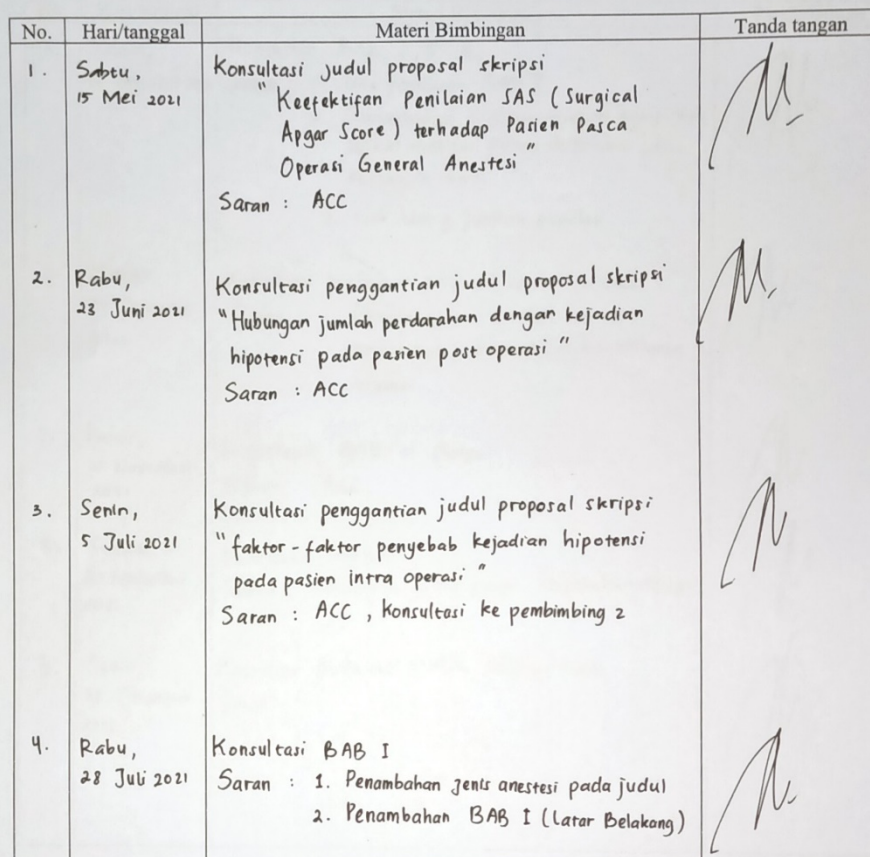 No. Hari/tanggal Materi Bimbingan Tanda tangan
1. Sabtu, Konsultasi judul proposal skripsi
15 Mei 2021 "Keefektifan Penilaian SAS (Surgical
Apgar Score) terhadap Pasien Pasca
Operasi General Anestesi"
Saran : ACC
2. Rabu, Konsultasi penggantian judul proposal skripsi
23 Juni 2021 "Hubungan jumlah perdarahan dengan kejadian
hipotensi pada pasien post operasi"
Saran : ACC
3. Senin, Konsultasi penggantian judul proposal skripsi
5 Juli 2021 "faktor-faktor penyebab kejadian hipotensi
pada pasien intra operasi"
Saran : ACC, Konsultasi ke pembimbing 2
4. Rabu, Konsultasi BAB I
28 Juli 2021 Saran : 1. Penambahan jenis anestesi pada judul
2. Penambahan BAB I (Latar Belakang)